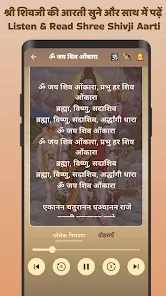 श्री शिवजी की आरती सुने और साथ में पढ़ें
Listen & Read Shree Shivji Aarti
ॐ जय शिव ओंकारा
ॐ जय शिव ओंकारा, प्रभु हर शिव
ओंकारा
ब्रह्मा, विष्णु, सदाशिव
ब्रह्मा, विष्णु, सदाशिव, अर्द्धांगी धारा
ॐ जय शिव ओंकारा
ॐ जय शिव ओंकारा, प्रभु हर शिव
ओंकारा
ब्रह्मा, विष्णु, सदाशिव
ब्रह्मा, विष्णु, सदाशिव, अर्द्धांगी धारा
ॐ जय शिव ओंकारा
एकानन चतुरानन पञ्चानन राजे